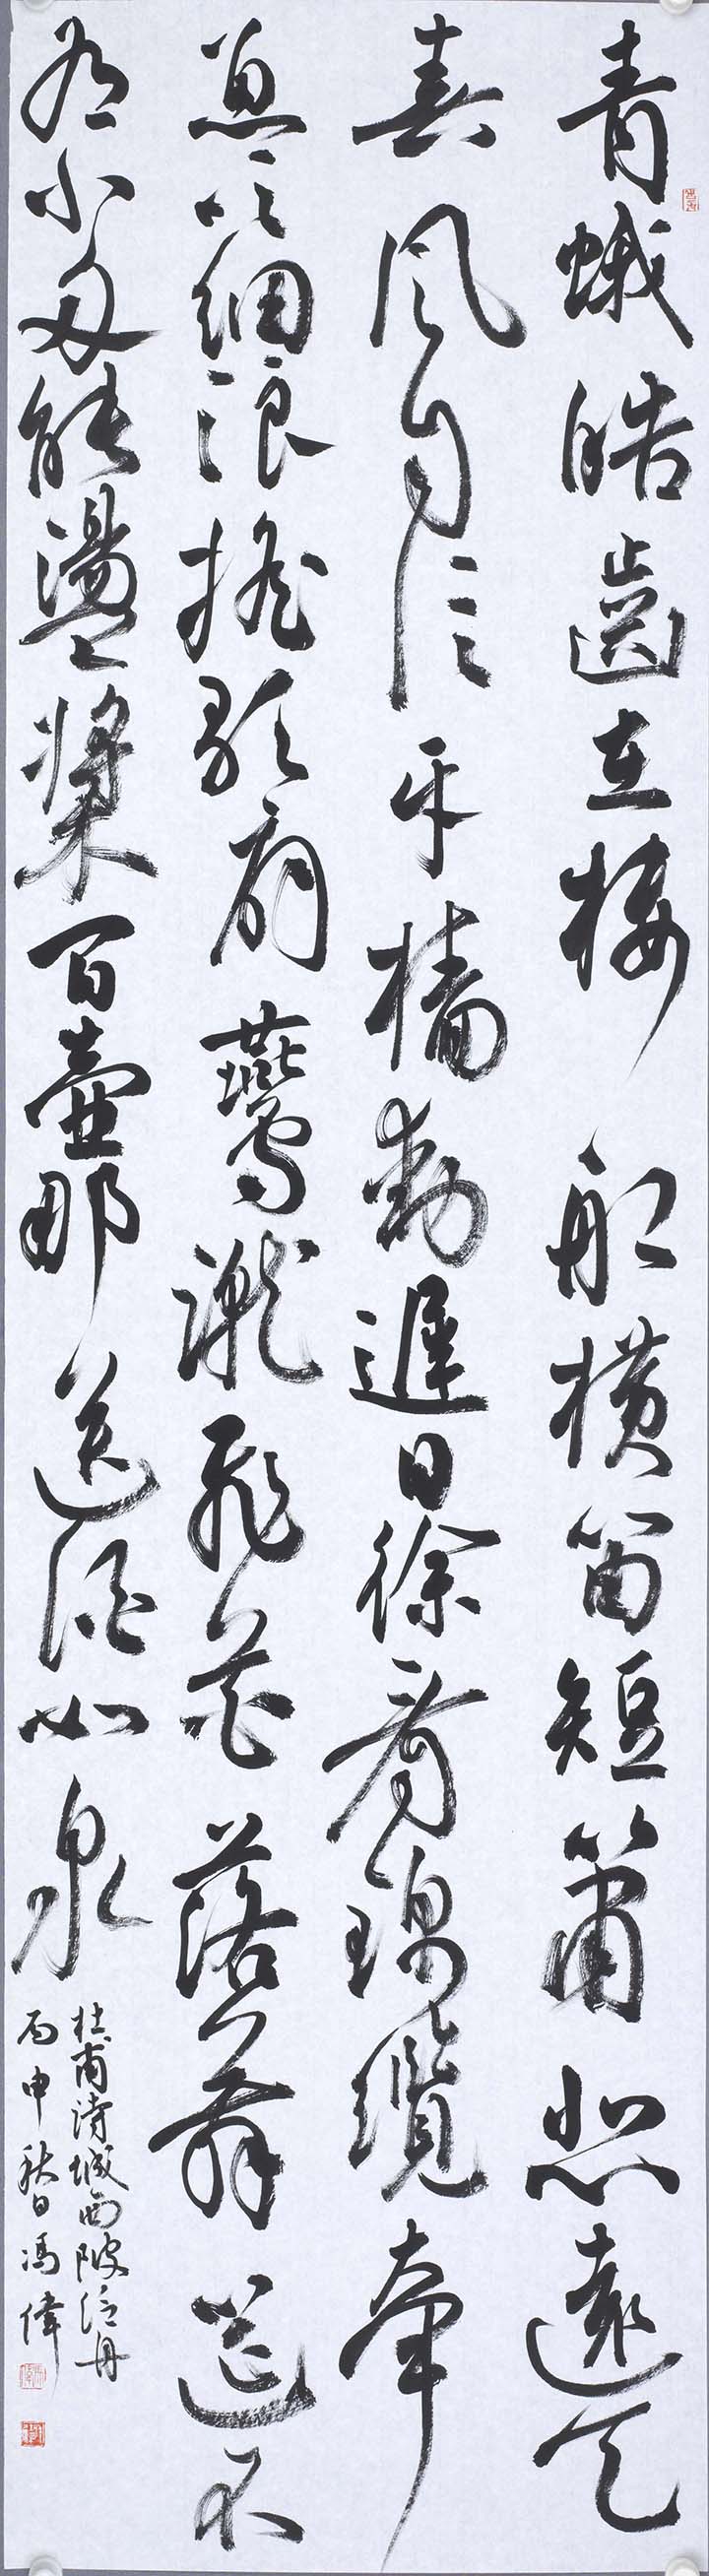 青蛾皓齒在樓船橫笛短簫悲遠天
春風自信牙檣動遲日徐看錦纜牽
魚吹細浪搖歌扇鷰蹴飛花落舞筵不
有小舟能盪槳百壺那送酒如泉
杜甫詩城西陂泛舟
丙申秋日馮偉